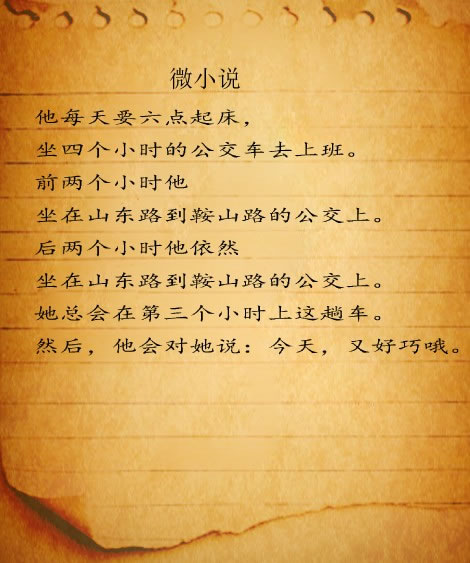 微小说
他每天要六点起床，
坐四个小时的公交车去上班。
前两个小时他
坐在山东路到鞍山路的公交上。
后两个小时他依然
坐在山东路到鞍山路的公交上。
她总会在第三个小时上这趟车。
然后，他会对她说：今天，又好巧哦。